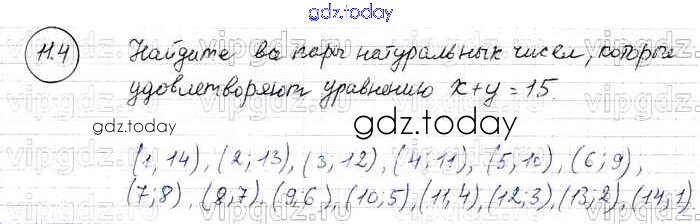 gdz.today
11.4 Найдите все пары натуральных чисел, которые
удовлетворяют уравнению x+y=15.
gdz.today gdz.today
(1, 14), (2; 13), (3, 12), (4; 11), (5; 10), (6; 9),
(7; 8), (8, 7), (9; 6), (10; 5), (11, 4), (12; 3), (13, 2), (14, 1)